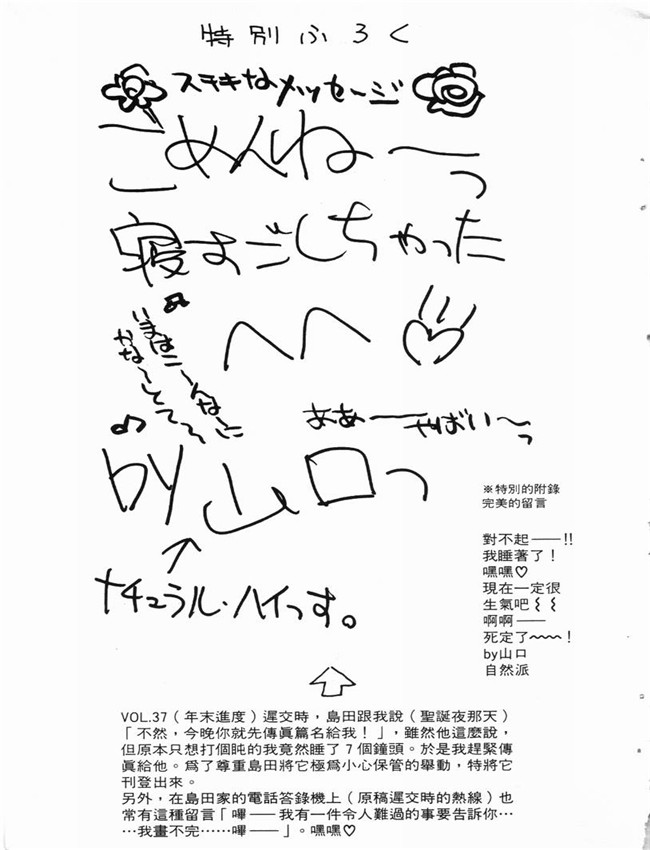 特別ふろく
ステキなメッセージ
ごめんねーっ
寝すごしちゃった
へへ♡
いまはこ〜んなに
かな〜しくて〜
ああーーやばい〜っ
by山口っ
ナチュラル・ハイっす。
※特別的附錄
完美的留言
對不起——!!
我睡著了！
嘿嘿♡
現在一定很
生氣吧⌇⌇
啊啊——
死定了〜〜〜！
by山口
自然派
VOL.37（年末進度）遲交時，島田跟我說（聖誕夜那天）
「不然，今晚你就先傳眞篇名給我！」，雖然他這麼說，
但原本只想打個盹的我竟然睡了7個鐘頭。於是我趕緊傳
眞給他。爲了尊重島田將它極爲小心保管的舉動，特將它
刊登出來。
另外，在島田家的電話答錄機上（原稿遲交時的熱線）也
常有這種留言「嗶——我有一件令人難過的事要告訴你…
…我畫不完……嗶——」。嘿嘿♡